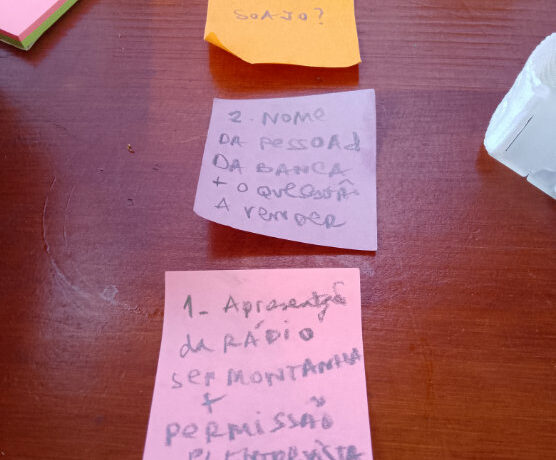 SOAJO?
2. NOME
DA PESSOA d
DA BANCA
+ O QUE ESTÁ
A VENDER
1- Apresentaçã
da RÁDIO
SER MONTANHA
+
PERMISSÃO
P/ ENTREVISTA